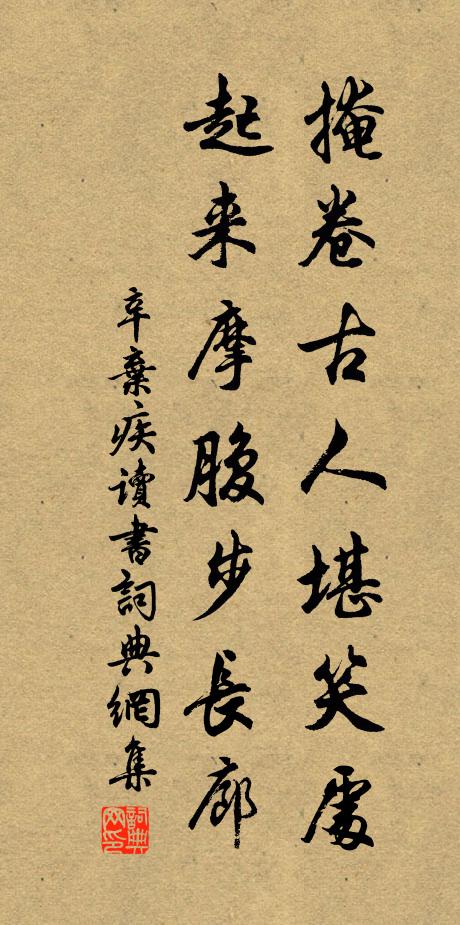 掩卷古人堪笑處
起来摩腹步長廊
辛棄疾讀書詞典網集
詞典網印